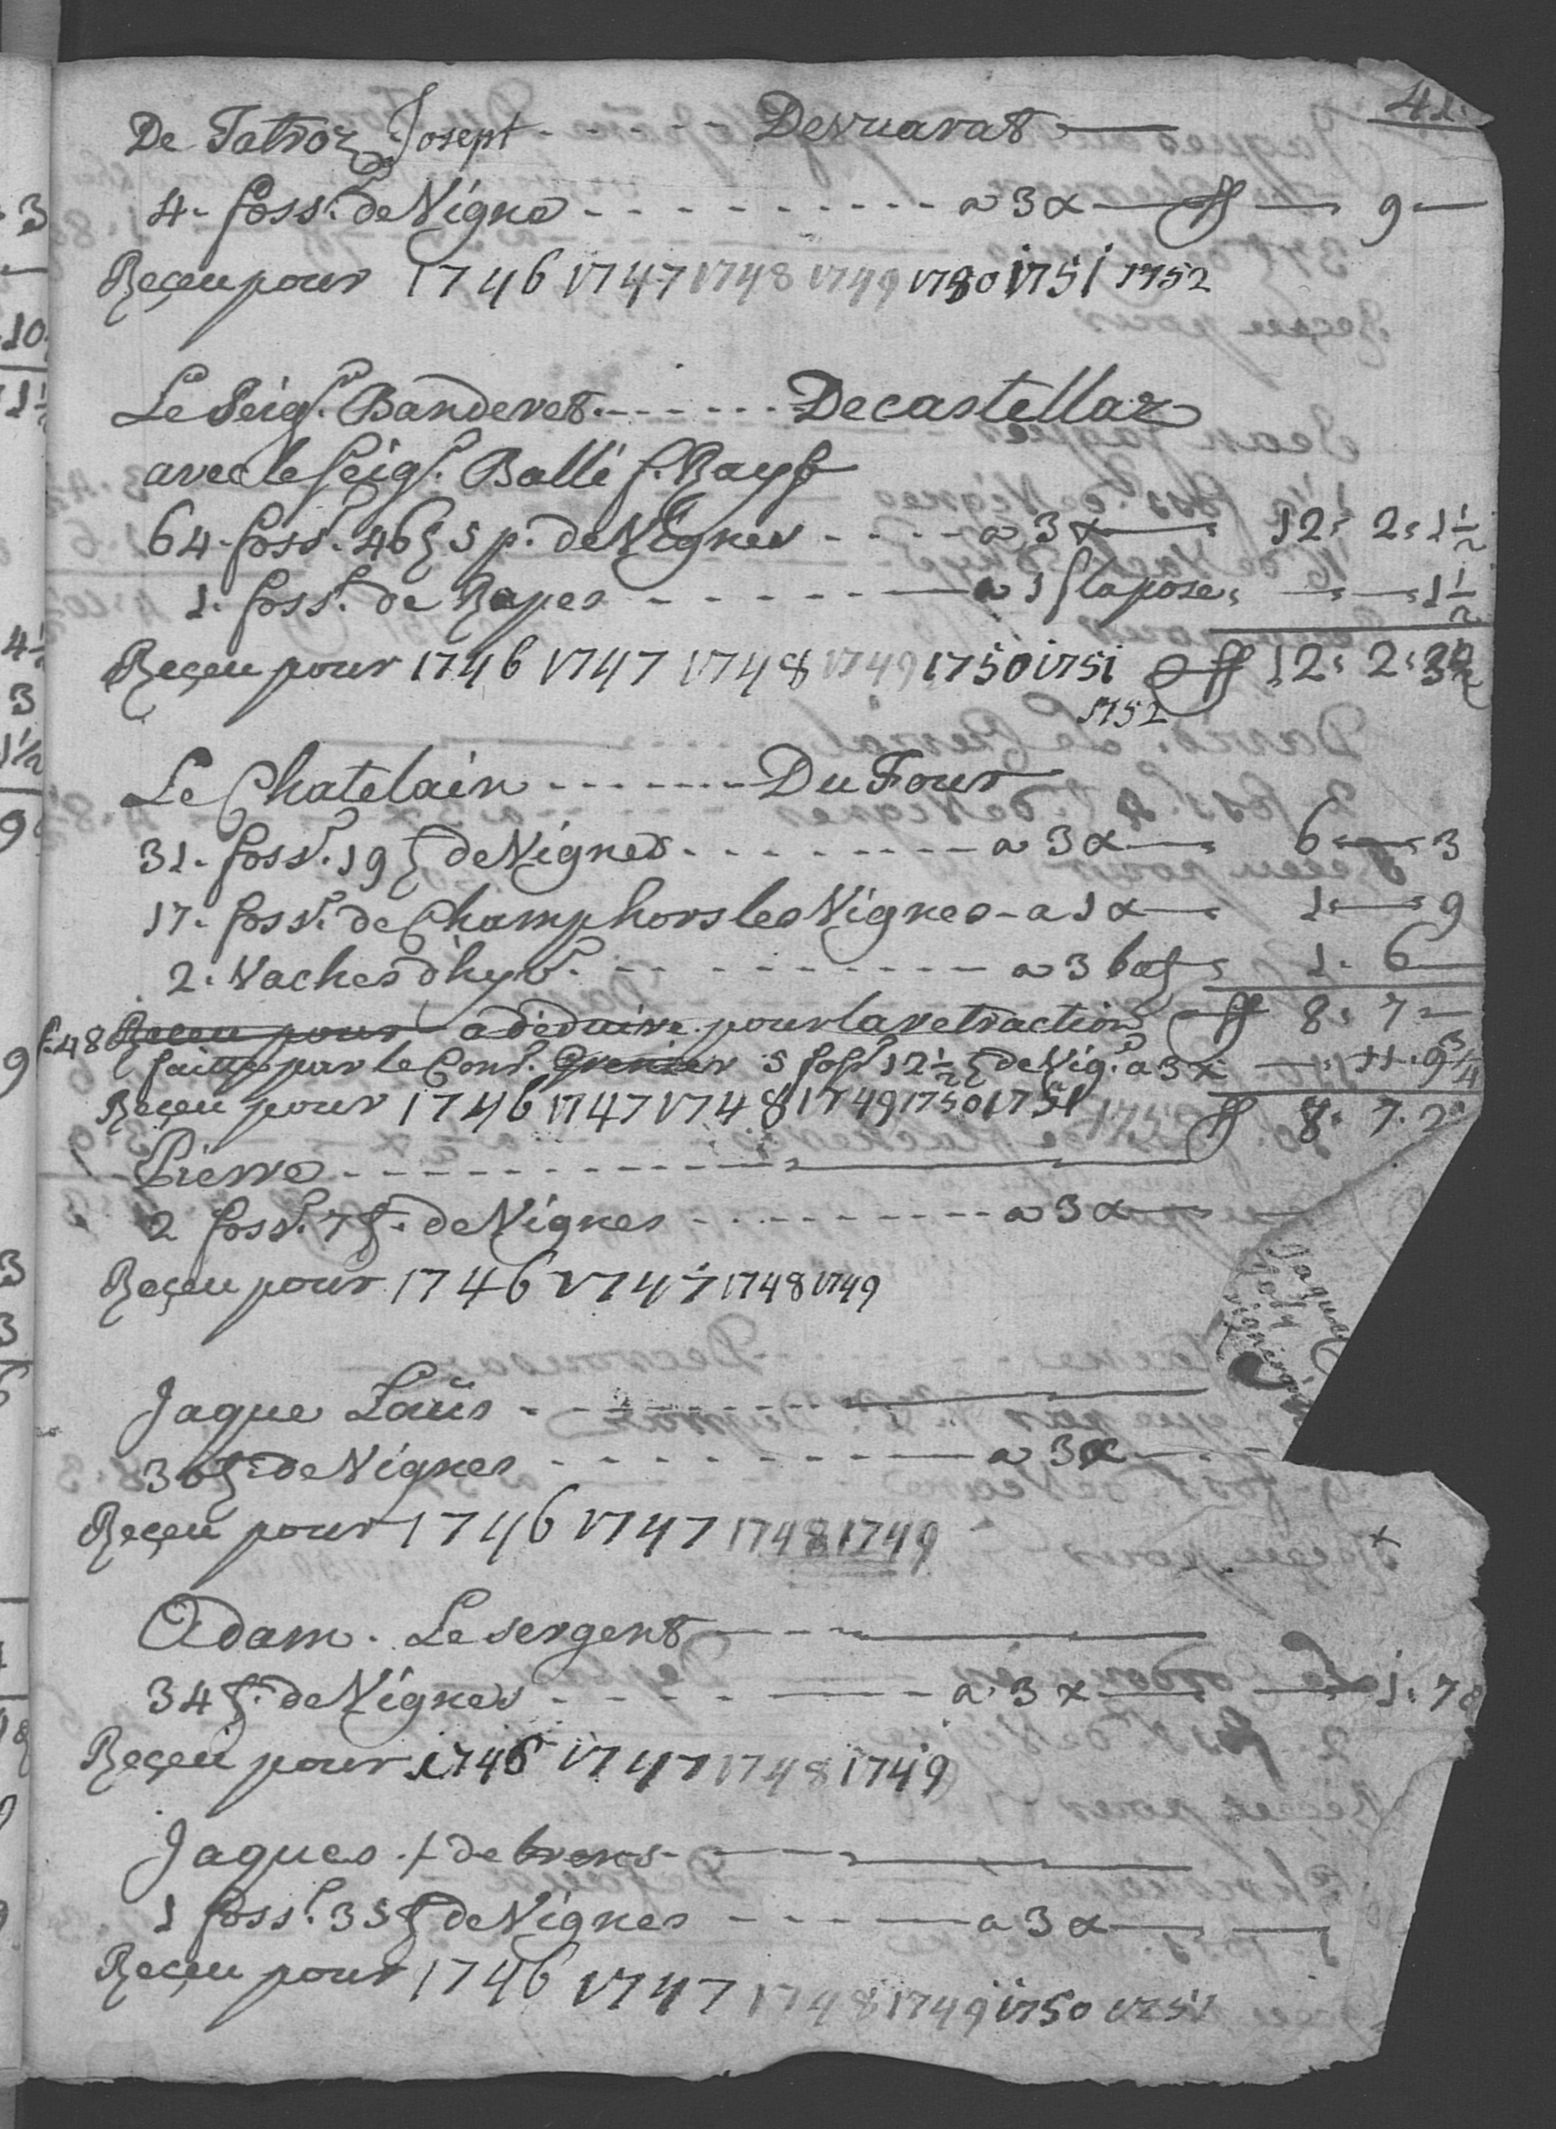 41.
De Tatroz Josept - - - - - Devuarat
4. foss.r de Vigne - - - - - - - - - - a 3 x ff — 9 —
Reçeu pour 1746 1747 1748 1749 1750 1751 1752
Le Seigr. Banderet - - - - - - Decastellaz
avec le Seigr. Balli f. Rayf
64. foss.r 46 ξ 5 p. de Vignes - - - - a 3 x — 12. 2. 1 1/2
1. foss.r de Rapes - - - - - - a 1 f la pose. — . — . 1 1/2
Reçeu pour 1746 1747 1748 1749 1750 1751 ff 12. 2. 3
1752
Le Chatelain - - - - - - - Du Four
31. foss.r 19 ξ de Vignes - - - - - - - - a 3 x — 6 — 3
17. foss.r de Champ hors les Vignes - a 1 x — 1 — 9
2. Vaches d'hyv.r - - - - - - - - - a 3 batz 1. 6 —
f. 48 Reçeu pour a déduire pour la retraction ff 8. 7 —
faitte par le Cons.r Grenier 5 foss.r 12 1/2 ξ de Vig.e a 3 x — . 11. 9 3/4
Reçeu pour 1746 1747 1748 1749 1750 1751 1752 ff 8. 7. 2
Pierre - - - - - - - - - -
2 foss.r 7 ξ. de Vignes - - - - - - - - - a 3 x —
Jaques
Reçeu pour 1746 1747 1748 1749
Jaque Loüis - - - - - - -
36 ξ. de Vignes - - - - - - - a 3 x —
Reçeu pour 1746 1747 1748 1749
Adam. Le sergent - - -
34 ξ. de Vignes - - - - - - - a 3 x — — 1. 7 8
Reçeu pour 1746 1747 1748 1749
Jaques. f de brens - -
1 foss.r 35 ξ de Vignes - - - - a 3 x —
Reçeu pour 1746 1747 1748 1749 1750 1751